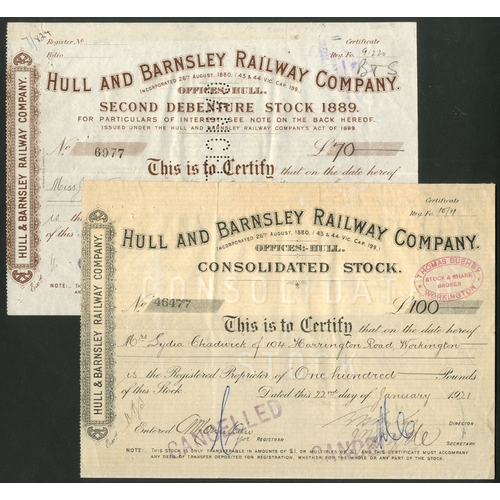 Register No
Certificate
Folio
Reg. No. 91220
HULL AND BARNSLEY RAILWAY COMPANY.
INCORPORATED 26TH AUGUST, 1880, (43 & 44 VIC. CAP. 199.)
OFFICES:- HULL.
SECOND DEBENTURE STOCK 1889.
FOR PARTICULARS OF INTEREST SEE NOTE ON THE BACK HEREOF.
ISSUED UNDER THE HULL AND BARNSLEY RAILWAY COMPANY'S ACT OF 1889.
No 6977
£70
This is to Certify that on the date hereof
Miss
HULL & BARNSLEY RAILWAY COMPANY.
NOTE:-
Certificate
Reg. No. 16/11
HULL AND BARNSLEY RAILWAY COMPANY.
INCORPORATED 26TH AUGUST, 1880, (43 & 44 VIC. CAP. 199.)
OFFICES:- HULL.
CONSOLIDATED STOCK.
THOMAS BUSHBY
STOCK & SHARE
BROKER
WORKINGTON
No 46477
£100
This is to Certify that on the date hereof
Mrs Lydia Chadwick of 104 Harrington Road, Workington
is the Registered Proprietor of One hundred Pounds
of this Stock. Dated this 22nd day of January 1921
DIRECTOR.
Entered
REGISTRAR
SECRETARY
CANCELLED
HULL & BARNSLEY RAILWAY COMPANY.
NOTE: THIS STOCK IS ONLY TRANSFERABLE IN AMOUNTS OF £1, OR MULTIPLES OF £1, AND THIS CERTIFICATE MUST ACCOMPANY
ANY DEED OF TRANSFER DEPOSITED FOR REGISTRATION, WHETHER FOR THE WHOLE OR ANY PART OF THE STOCK.